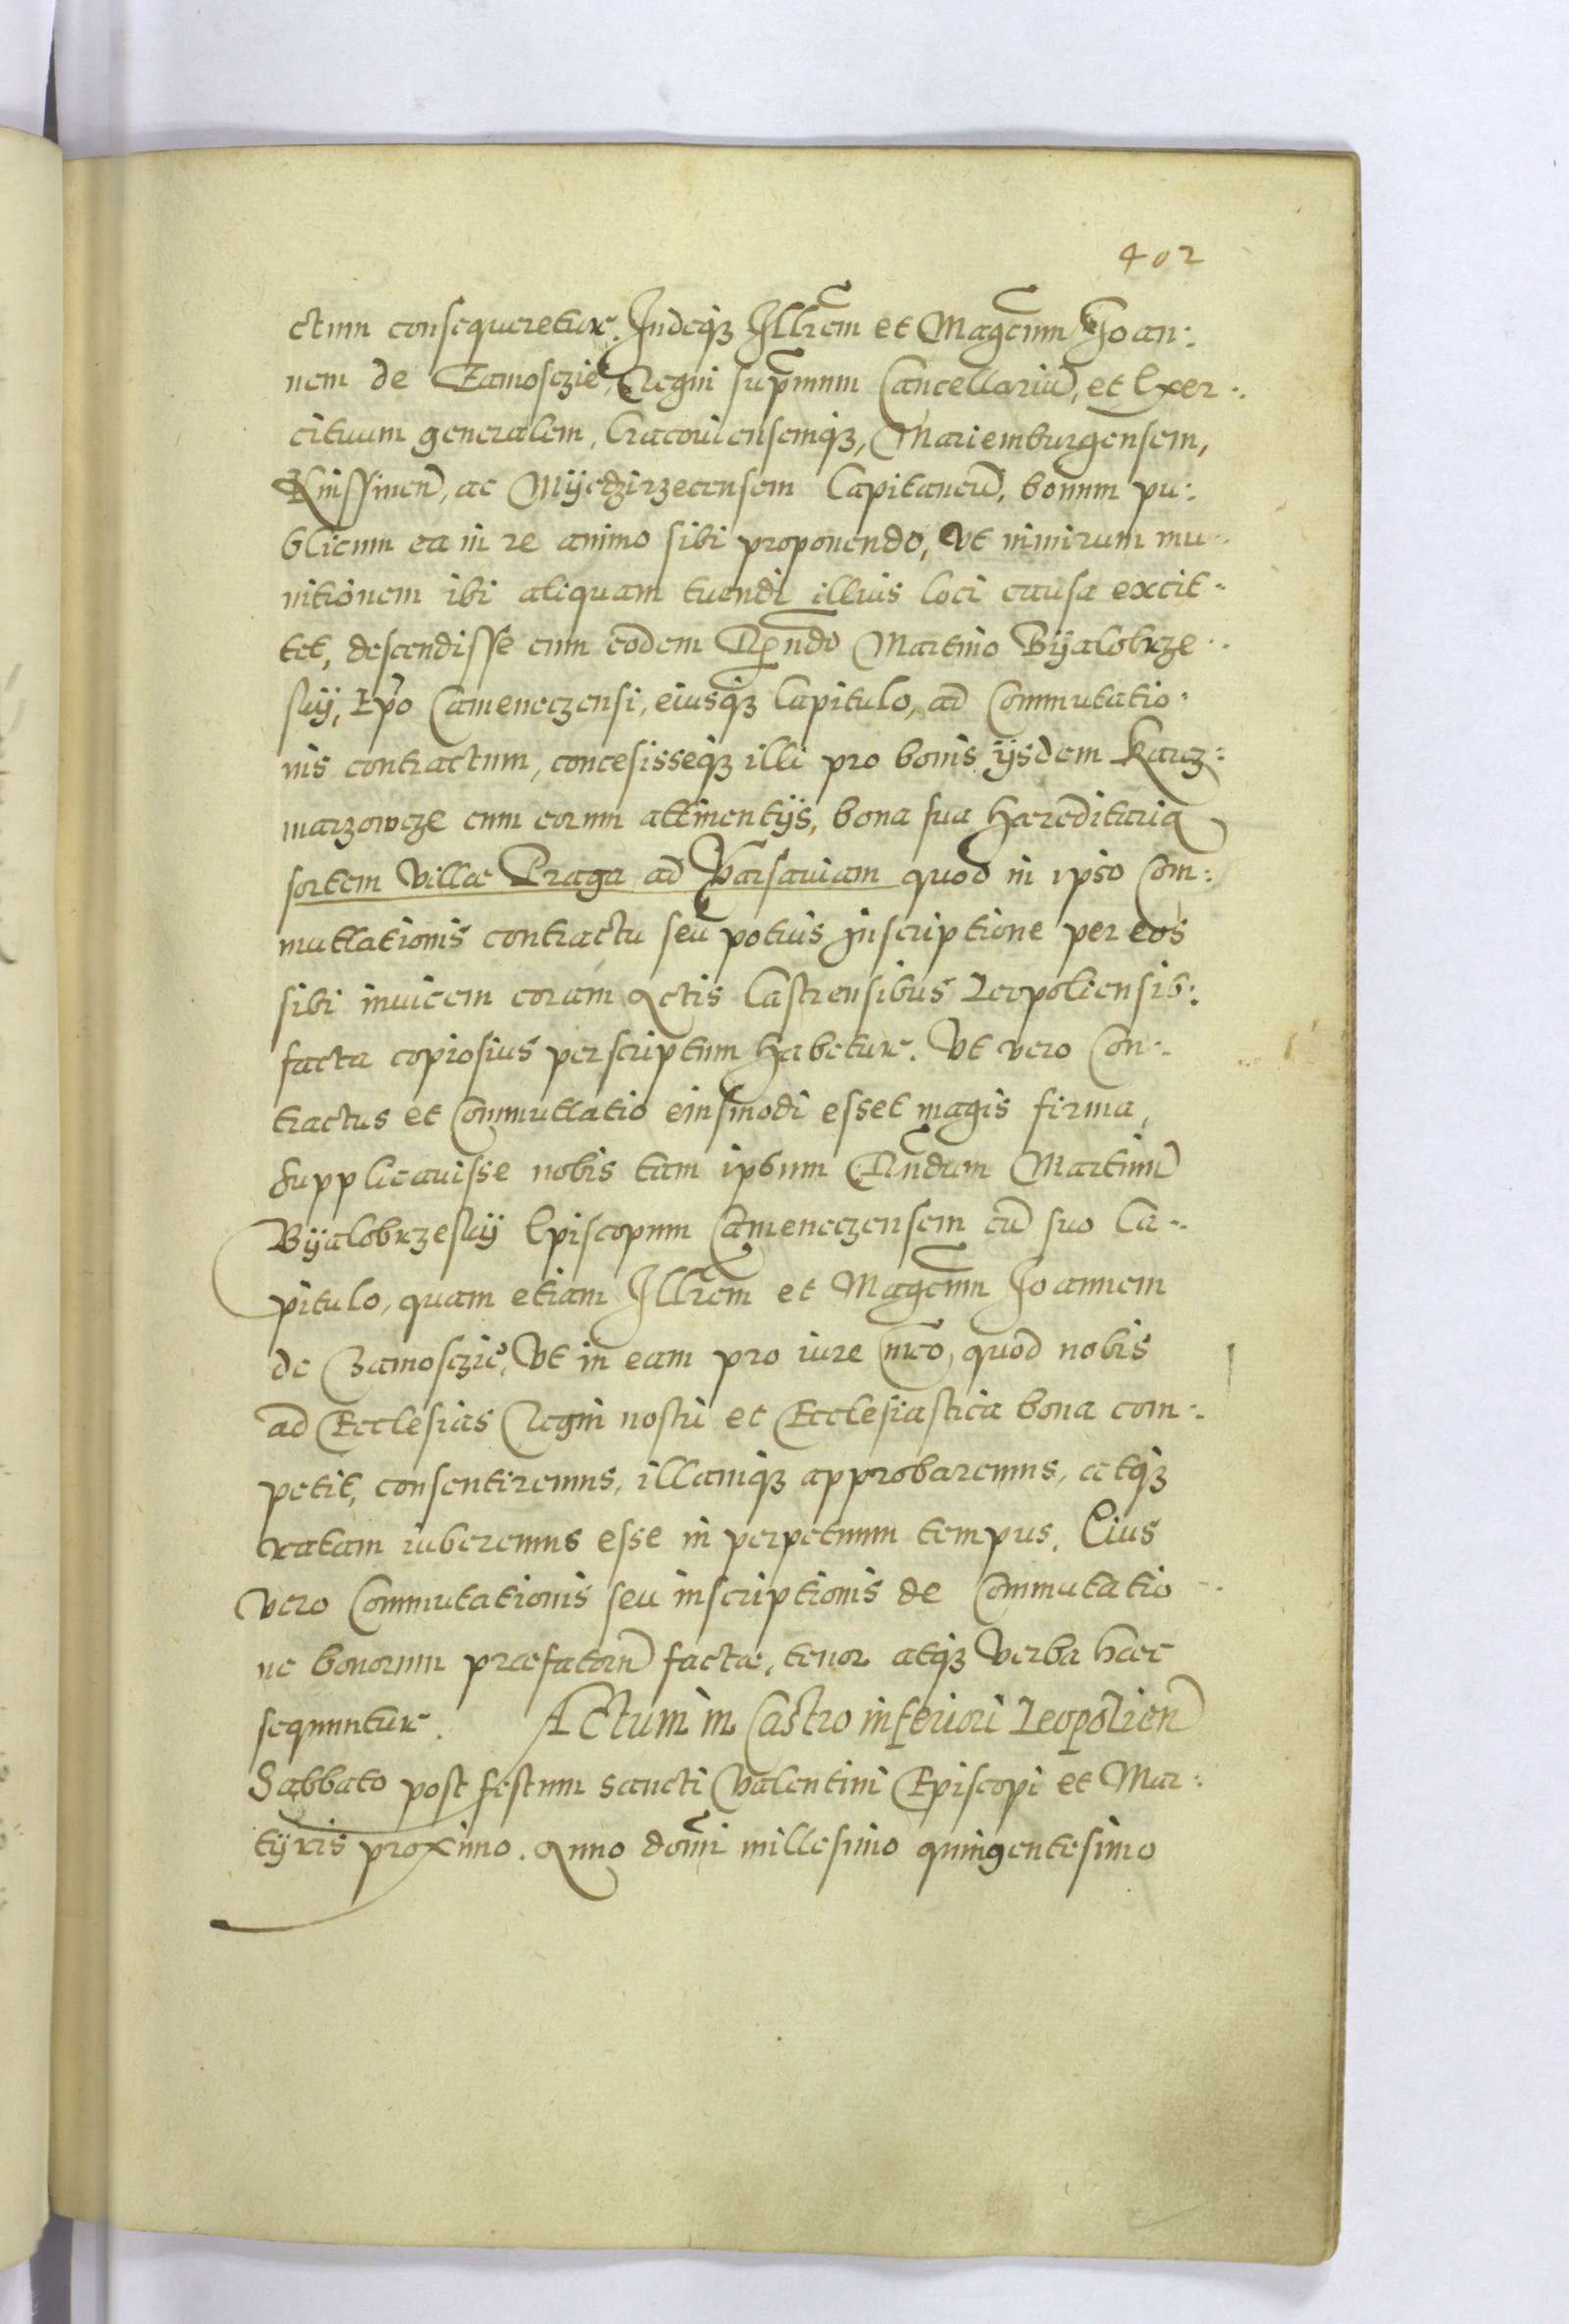 402
ctum consequeretur. Indeq3 Illrem et Magcum Joan:
nem de Zamosczie, Regni supmum Cancellariū, et Exer:
cituum generalem, Cracouiensemq3, Mariemburgensem,
Knissinen̄, ac Myedzirzecensem Capitaneū, bonum pu:
blicum ea in re animo sibi proponendo, Vt nimirum mu:
nitionem ibi aliquam tuendi illius loci causa excit:
tet, descendisse cum eodem Rndo Martino Byalobrze:
sky, Ep̄o Cameneczensi, eiusq3 Capitulo, ad Commutatio:
nis contractum, concesisseq3 illi pro bonis ijsdem Karcz:
marzowcze cum eorum attinentijs, bona sua hæreditaria
sortem villæ Praga ad Varsauiam quod in ipso Com:
muttationis contractu seu potius inscriptione per eos
sibi inuicem coram Actis Castrensibus Leopoliensib:
facta copiosius perscriptum habetur. Vt vero Con:
tractus et Commuttatio eiusmodi esset magis firma,
Supplicauisse nobis tam ipsum Rndum Martinū
Byalobrzesky Episcopum Cameneczensem cū suo Ca:
pitulo, quam etiam Illrem et Magcum Joannem
de Zamosczie, Vt in eam pro iure nr̄o, quod nobis
ad Ecclesias Regni nostri et Ecclesiastica bona com:
petit, consentiremus, illamq3 approbaremus, atq3
ratam iuberemus esse in perpetuum tempus. Eius
vero Commutationis seu inscriptionis de Commutatio:
ne bonorum præfatorū factæ, tenor atq3 verba hæc
sequuntur. Actum in Castro inferiori Leopolien̄
Sabbato post festum sancti Valentini Episcopi et Mar:
tyris proximo. Anno domi millesimo quingentesimo